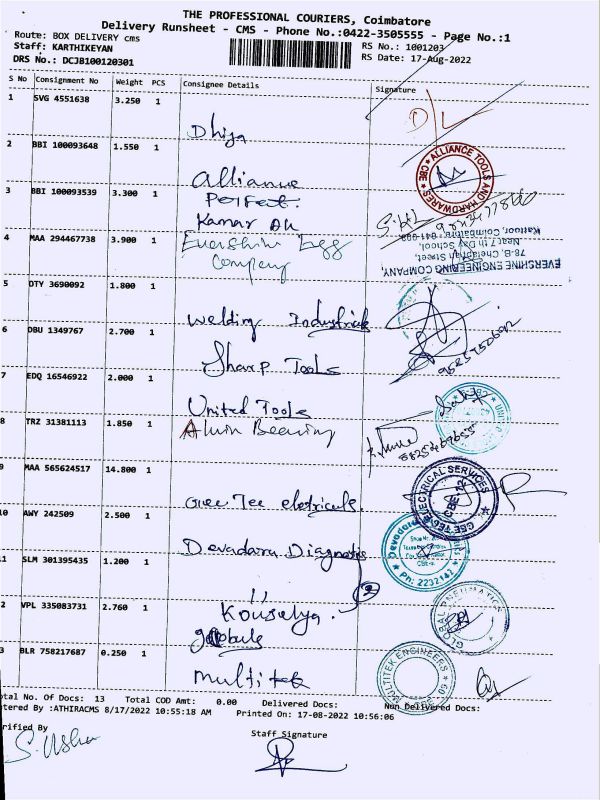 THE PROFESSIONAL COURIERS, Coimbatore
Delivery Runsheet - CMS - Phone No.:0422-3505555 - Page No.:1
Route: BOX DELIVERY cms
Staff: KARTHIKEYAN
DRS No.: DCJB100120301
RS No.: 1001203
RS Date: 17-Aug-2022
S No Consignment No Weight PCS Consignee Details Signature
1 SVG 4551638 3.250 1
Dhiya
D/L
2 BBI 100093648 1.550 1
Alliance
ALLIANCE TOOLS AND HARDWARES CBE
3 BBI 100093539 3.300 1
Perfect
Kamar
4 MAA 294467738 3.900 1
Evershine Egg
Company
EVERSHINE ENGINEERING COMPANY,
78-B, Street,
Near 7th Day School,
Kattoor, Coimbatore
5 OTY 3690092 1.800 1
Welding Industries
6 DBU 1349767 2.700 1
Sharp Tools
7 EDQ 16546922 2.000 1
United Tools
8 TRZ 31381113 1.850 1
Alwin Bearing
9 MAA 565624517 14.800 1
Gee Tee eletricals
GEE TEE ELECTRICAL SERVICES
CBE-12
10 AWY 242509 2.500 1
Devadaru Diagnostics
Devadaru
Ph: 2232142
11 SLM 301395435 1.200 1
,,
2
Kousalya.
12 VPL 335083731 2.760 1
globule
GLOBAL PNEUMATICS
13 BLR 758217687 0.250 1
multitek
MULTITEK ENGINEERS
Total No. Of Docs: 13 Total COD Amt: 0.00 Delivered Docs: Non Delivered Docs:
Entered By :ATHIRACMS 8/17/2022 10:55:18 AM Printed On: 17-08-2022 10:56:06
Verified By
Staff Signature
S. Usha